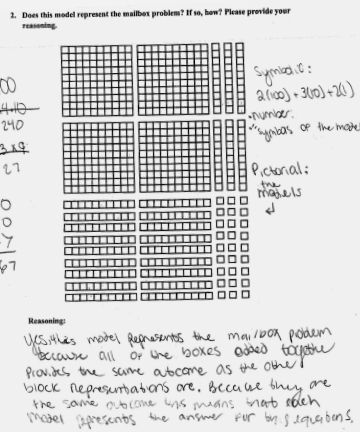 2. Does this model represent the mailbox problem? If so, how? Please provide your
reasoning.
00
4·10
240
3x9
27
0
0
7
67
Symbolic:
2(100)+3(10)+7(1)
•number.
•symbols of the model
Pictorial:
the
models
Reasoning:
Yes, this model represents the mailbox problem
because all of the boxes added together
provides the same outcome as the other
block representations are. Because they are
the same outcome this means that each
model represents the answer for equations.